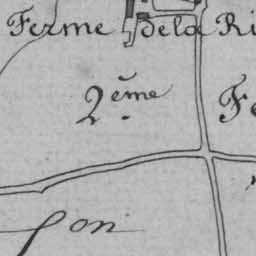 Ferme de la Ri
2.ème Fe
son